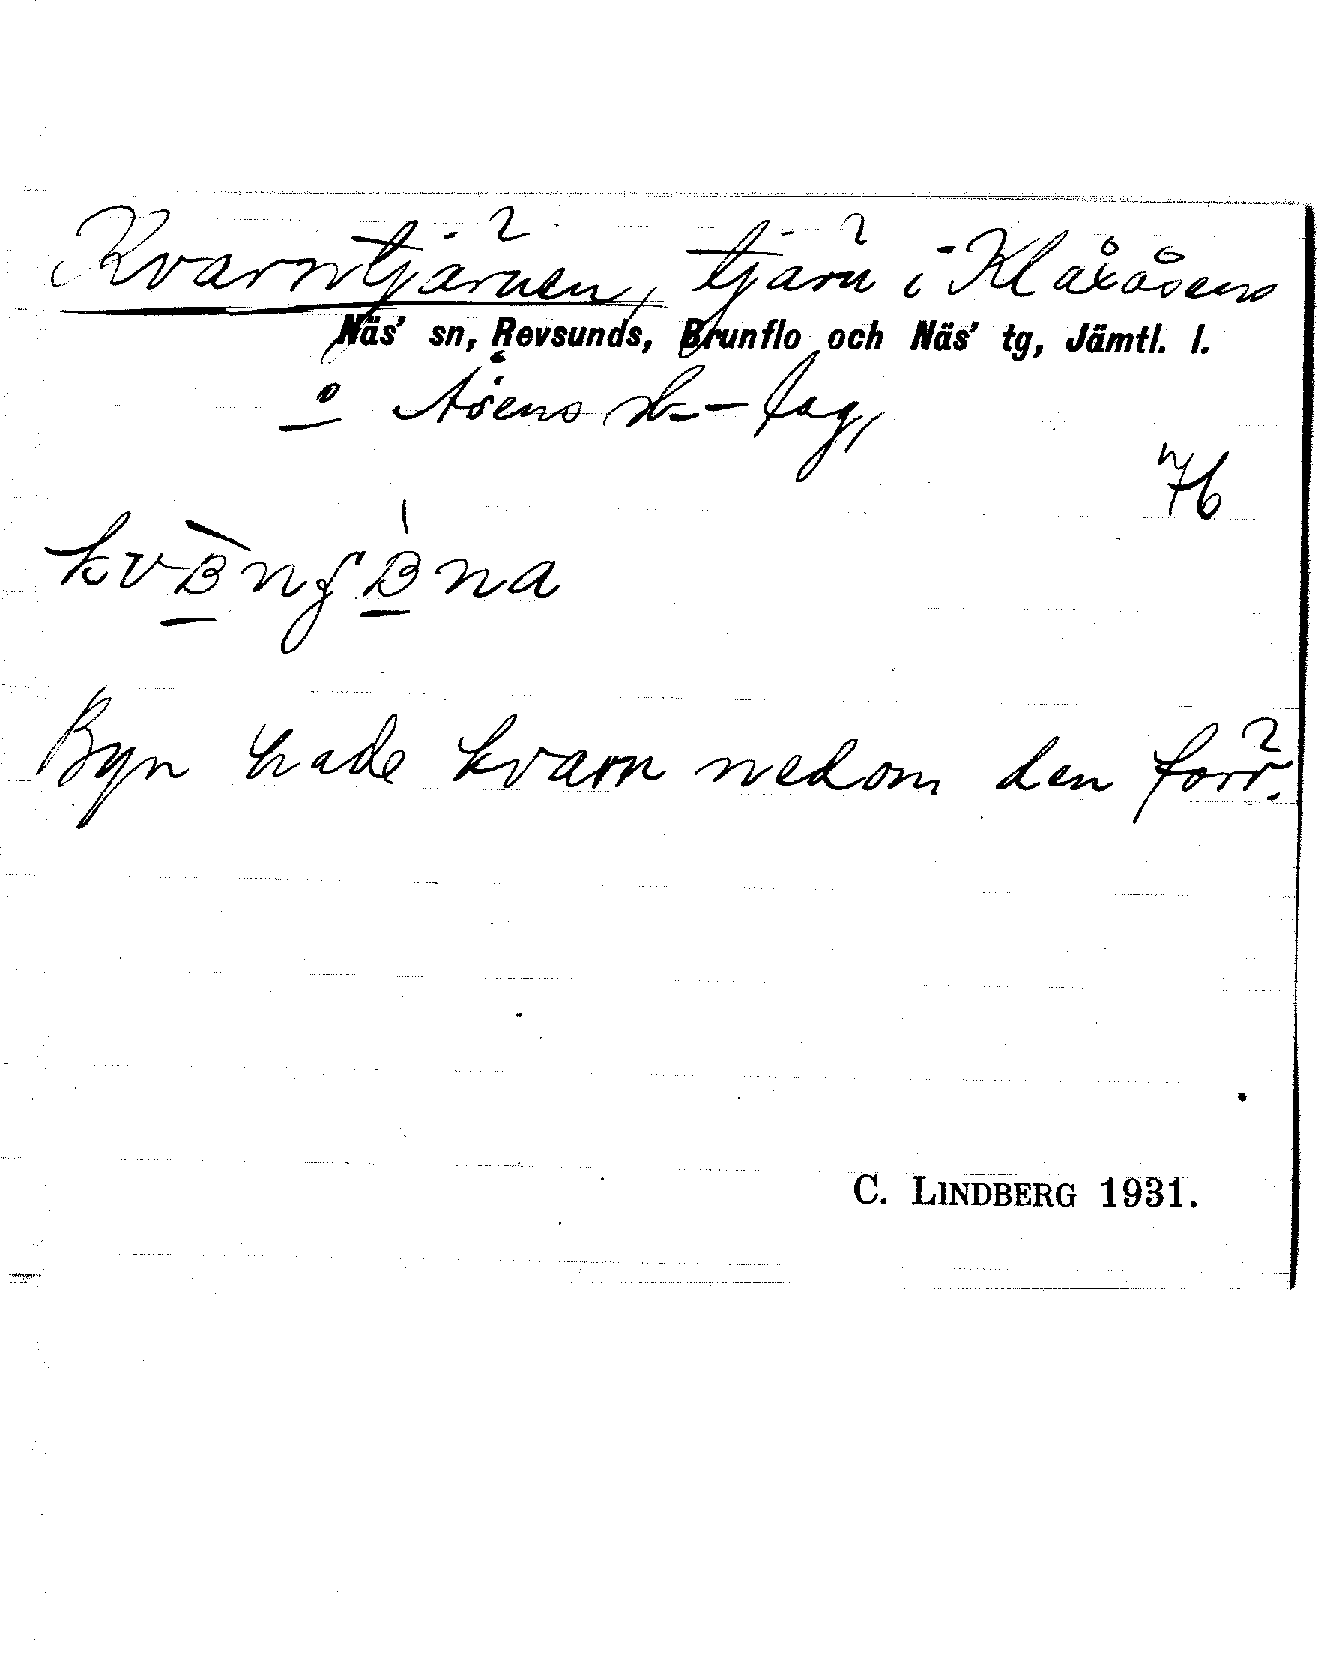 Kvarntjärnen, tjärn i Kläxåsens
Näs' sn, Revsunds, Brunflo och Näs' tg, Jämtl. l.
o Åsens sk-lag,
76
Byn hade kvarn nedom den förr.
C. LINDBERG 1931.